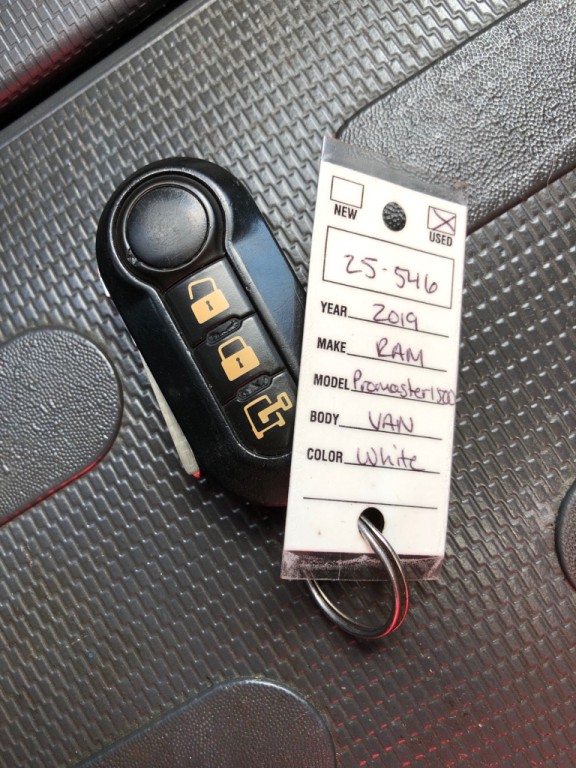 NEW
USED
25-546
YEAR 2019
MAKE RAM
MODEL Promaster1500
BODY VAN
COLOR White